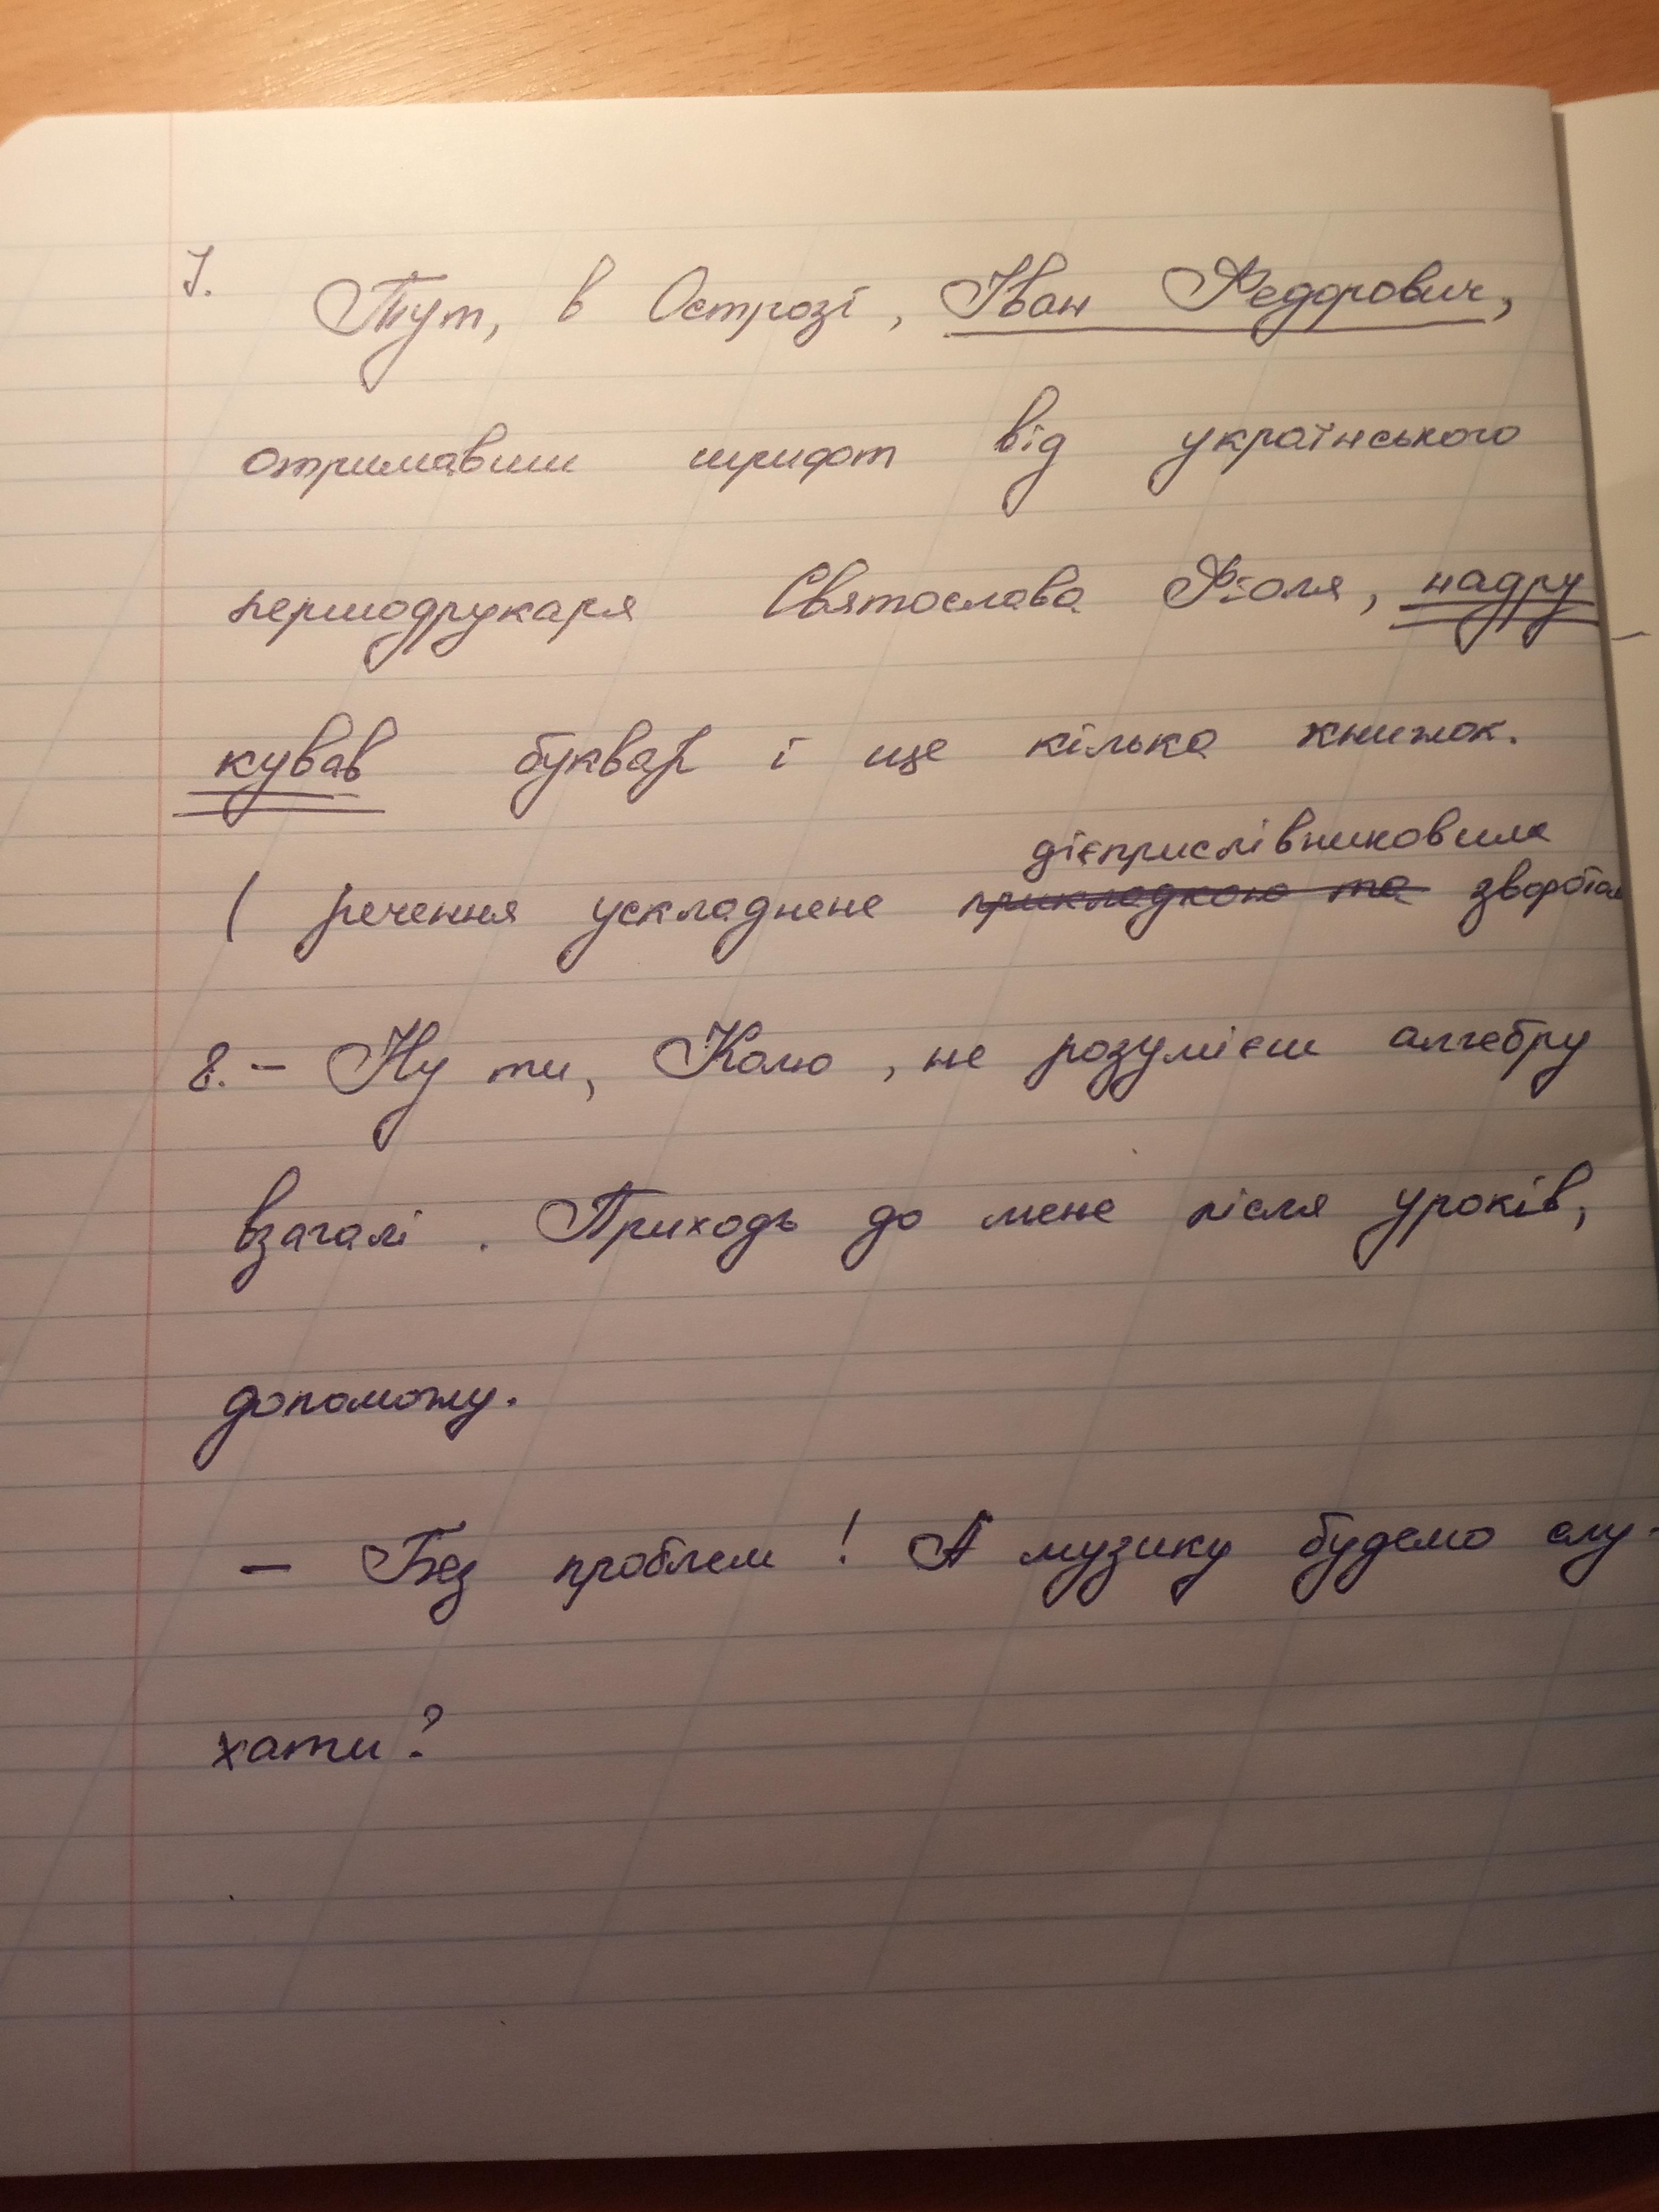 7. Тут, в Острозі, Іван Федорович,
отримавши шрифт від українського
першодрукаря Святослава Фіоля, надру-
кував буквар і ще кілька книжок.
дієприслівниковим
( речення ускладнене прикладкою та зворотом
8. – Ну ти, Колю, не розумієш алгебру
взагалі. Приходь до мене після уроків,
допоможу.
– Без проблем! А музику будемо слу-
хати?